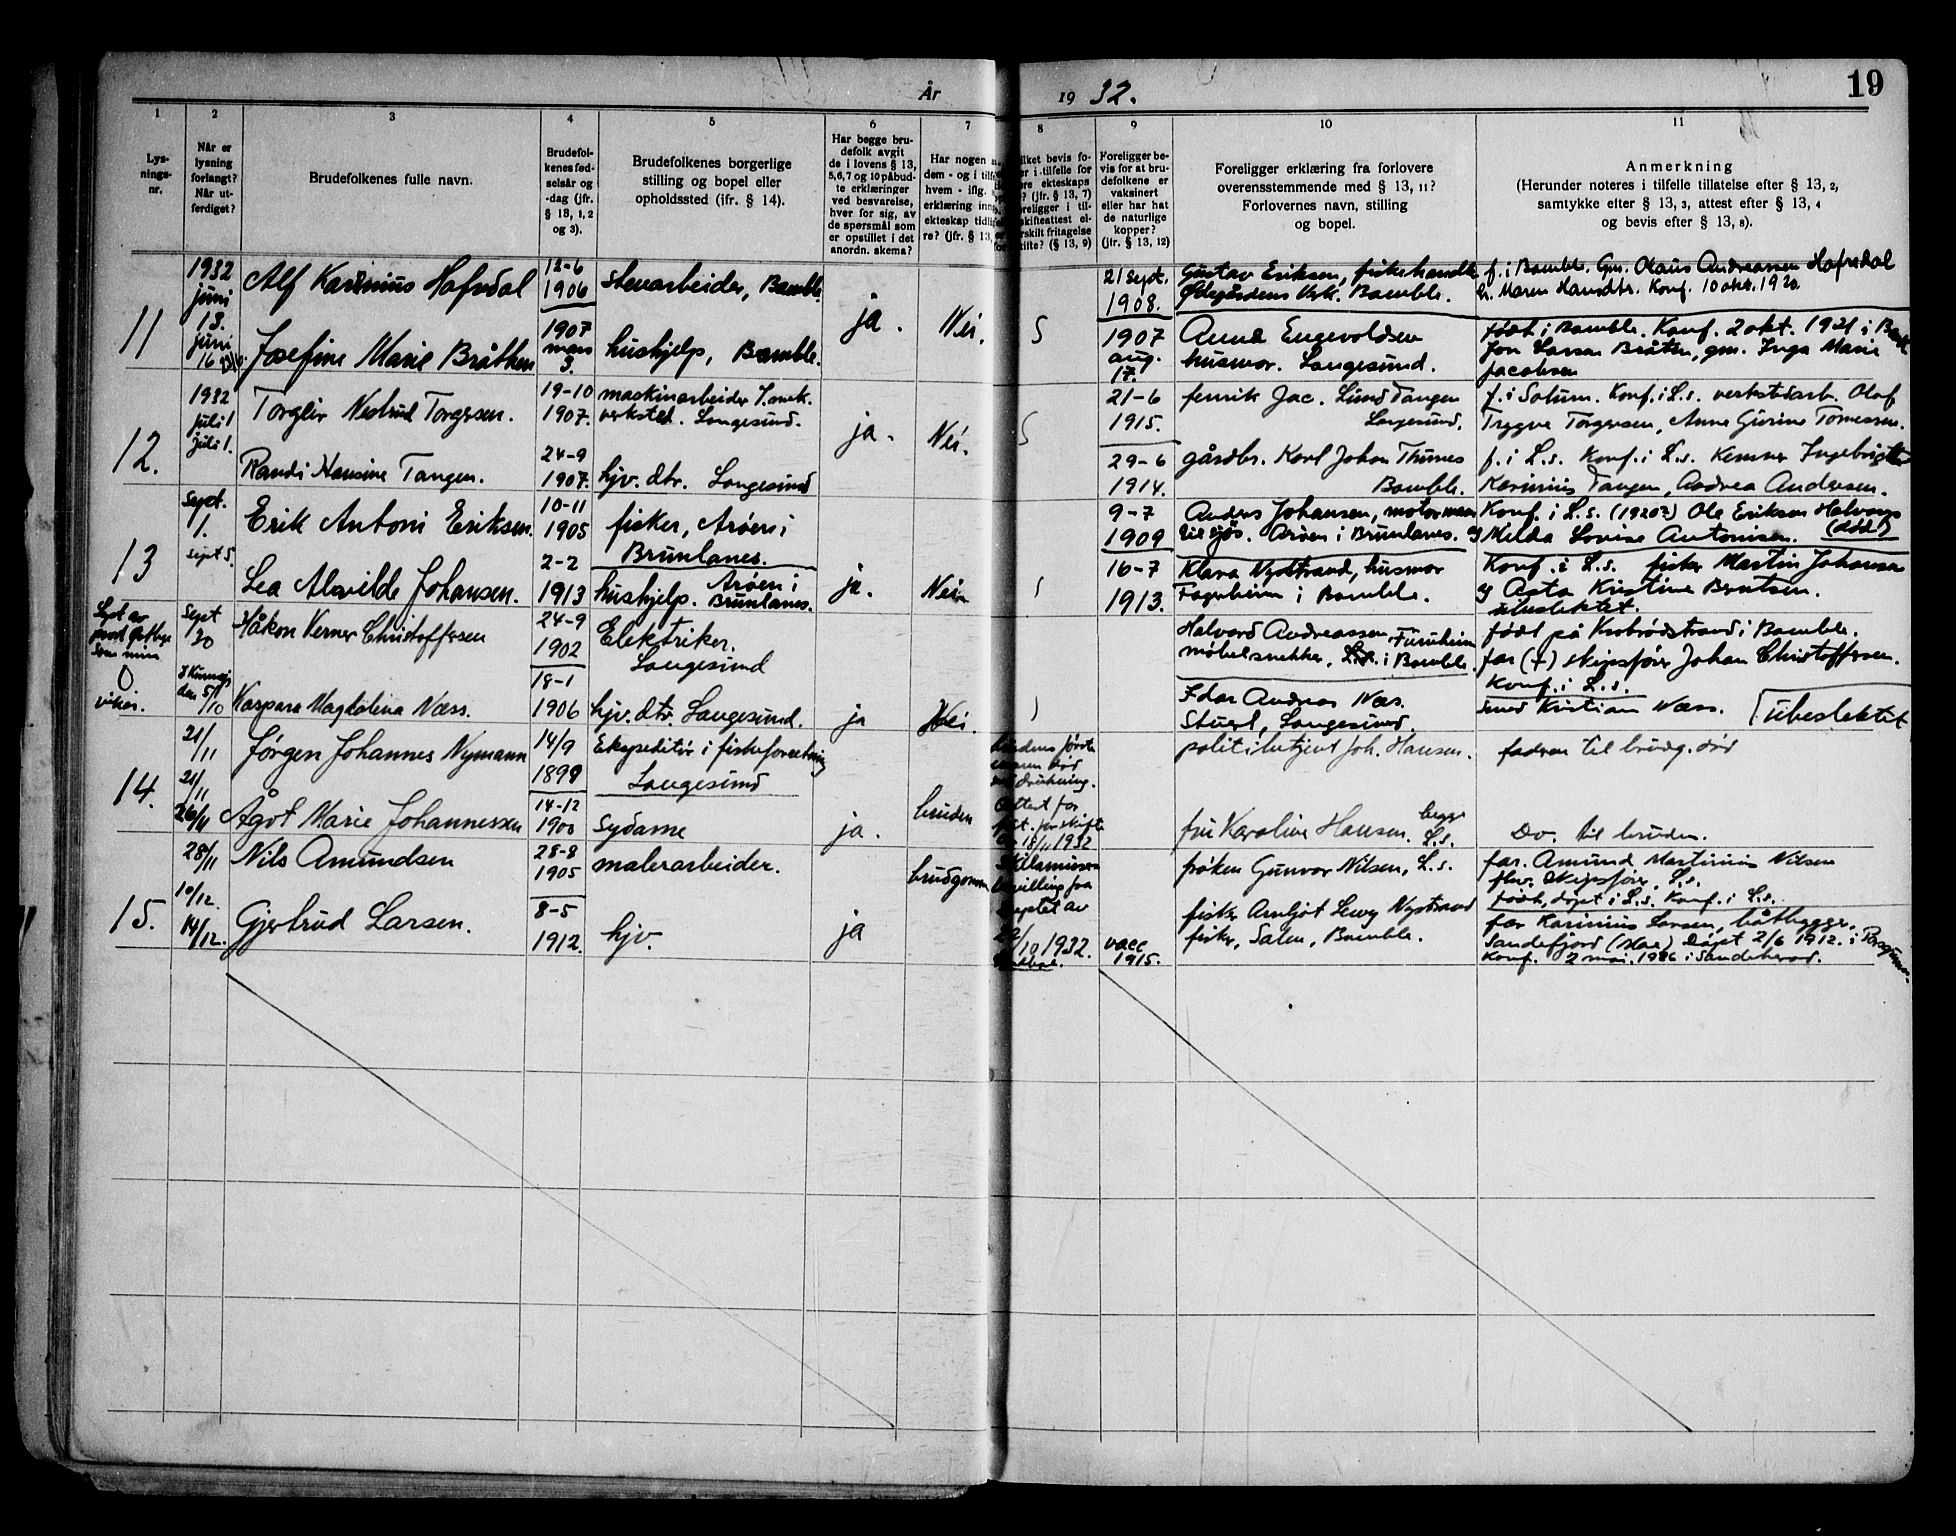 År 1932.
19
1
2
3
4
5
6
7
8
9
10
11
Lys-
nings-
nr.
Når er
lysning
forlangt?
Når ut-
ferdiget?
Brudefolkenes fulle navn.
Brudefol-
kenes fød-
selsår og
-dag (jfr.
§ 13, 1, 2
og 3).
Brudefolkenes borgerlige
stilling og bopel eller
opholdssted (ifr. § 14).
Har begge bru-
defolk avgit
de i lovens § 13,
5,6,7 og 10 påbud-
te erklæringer
ved besvarelse,
hver for sig, av
de spørsmål som
er opstillet i det
anordn. skema?
Har nogen
dem - og i tilf
hvem - iflg.
erklæring inn
ekteskap tidli
re? (jfr. § 13,
ilket bevis fo-
er i tilfelle for
ere ekteskaps
? (jfr. § 13, 7)
religger i til-
skifteattest el-
rskilt fritagelse
kifte? (§ 13, 9)
Foreligger be-
vis for at bru-
defolkene er
vaksinert
eller har hat
de naturlige
kopper?
(jfr. § 13, 12)
Foreligger erklæring fra forlovere
overensstemmende med § 13, 11?
Forlovernes navn, stilling
og bopel.
Anmerkning
(Herunder noteres i tilfelle tillatelse efter § 13, 2,
samtykke efter § 13, 3, attest efter § 13, 4
og bevis efter § 13, 8).
11
1932
juni
13.
juni
16
Alf Karinius Hafsdal
12-6
1906
stenarbeider, Bamble
Josefine Marie Bråthen
1907
mars
3.
hushjelp, Bamble.
ja.
Nei.
21 sept.
1908.
1907
aug.
17.
Gustav Eriksen, fiskehandler
Ødegårdens Verk. Bamble.
Anna Engevoldsen
husmor. Langesund.
f. i Bamble. Gm. Olaus Andreassen Hafsdal
h. Maren Hansdtr. Konf. 10 okt. 1920.
født i Bamble. Konf. 2 okt. 1921 i
Jon Larsen Bråten, gm. Inga Marie
Jacobsen
12.
1932
juli 1
juli 1.
Torgeir Nestrud Torgersen.
19-10
1907.
maskinarbeider
verksted. Langesund.
Randi Hansine Tangen.
24-9
1907.
hjv. dtr. Langesund
ja.
Nei.
21-6
1915.
29-6
1914.
Henrik Jac. Lund Tangen
Langesund.
gårdbr. Karl Johan Thines
Bamble.
f. i Solum. Konf. i L.s. verkstedarb. Olaf
Trygve Torgersen, Anne Gurine Tomessen.
f. i L.s. Konf. i L.s. Kemner Ingebrigt
Karinius Tangen, Andrea Andersen.
13
sept.
1.
sept 5.
Erik Antoni Eriksen.
10-11
1905
fisker, Arøen i
Brunlanes.
Lea Alvilde Johansen.
2-2
1913
hushjelp. Arøen i
Brunlanes.
ja.
Nei
9-7
1909
16-7
1913.
Anders Johansen, motormann
til sjøs. Arøen i Brunlanes.
Klara Nystrand, husmor
Fagerheim i Bamble.
Konf. i L.s. (1920?) Ole Eriksen Halvorp
(død)
og Milda Lovise Antonisen.
Konf. i L.s. fisker Martin Johansen
og Asta Kristine Berntsen.
ubeslektet.
0
sept
30
den 5/10
Håkon Verner Christoffersen
24-9
1902
Elektriker.
Langesund
Kaspara Magdalena Næss.
18-1
1906
hjv. dtr. Langesund.
ja
Nei.
Halvard Andreassen Furuheim
møbelsnekker, i Bamble.
Idar Andreas Næs.
Stuert, Langesund
født på Krabrødstrand i Bamble.
far (†) skipsfører Johan Christoffersen.
Konf. i L.s.
smed Kristian Næss. [ubeslektet
14.
21/11
21/11
26/11
Jørgen Johannes Nymann
14/9
1899
Ekspeditør i fiskeforretning
Langesund
Ågot Marie Johannessen
14-12
1900
Sydame
ja.
bruden
Brudens første
mann død
ved drukning.
Attest
18/11 1932
politibetjent Joh. Hansen.
fru Karoline Hansen. begge
L.s.
fadren til brudg. død
Do. til bruden.
15.
28/11
10/12.
14/12.
Nils Amundsen
28-8
1905
malerarbeider.
Gjertrud Larsen.
8-5
1912.
hjv.
ja
brudgommen
Skilsmisse
bevilling fra
22/10 1932.
vacc
1915.
frøken Gunvor Nilsen, L.s.
fisker Arnljot Levy Nystrand
fisker, Salen, Bamble.
far. Amund Martinius Nilsen
fhv. skipsfører, L.s.
født, døpt i L.s. Konf. i L.s.
far Karinius Larsen, båtbygger,
Sandefjord (Mor) Døpt 2/6 1912. i Porsgrunn.
Konf. 2 mai. 1926 i Sandeherad.